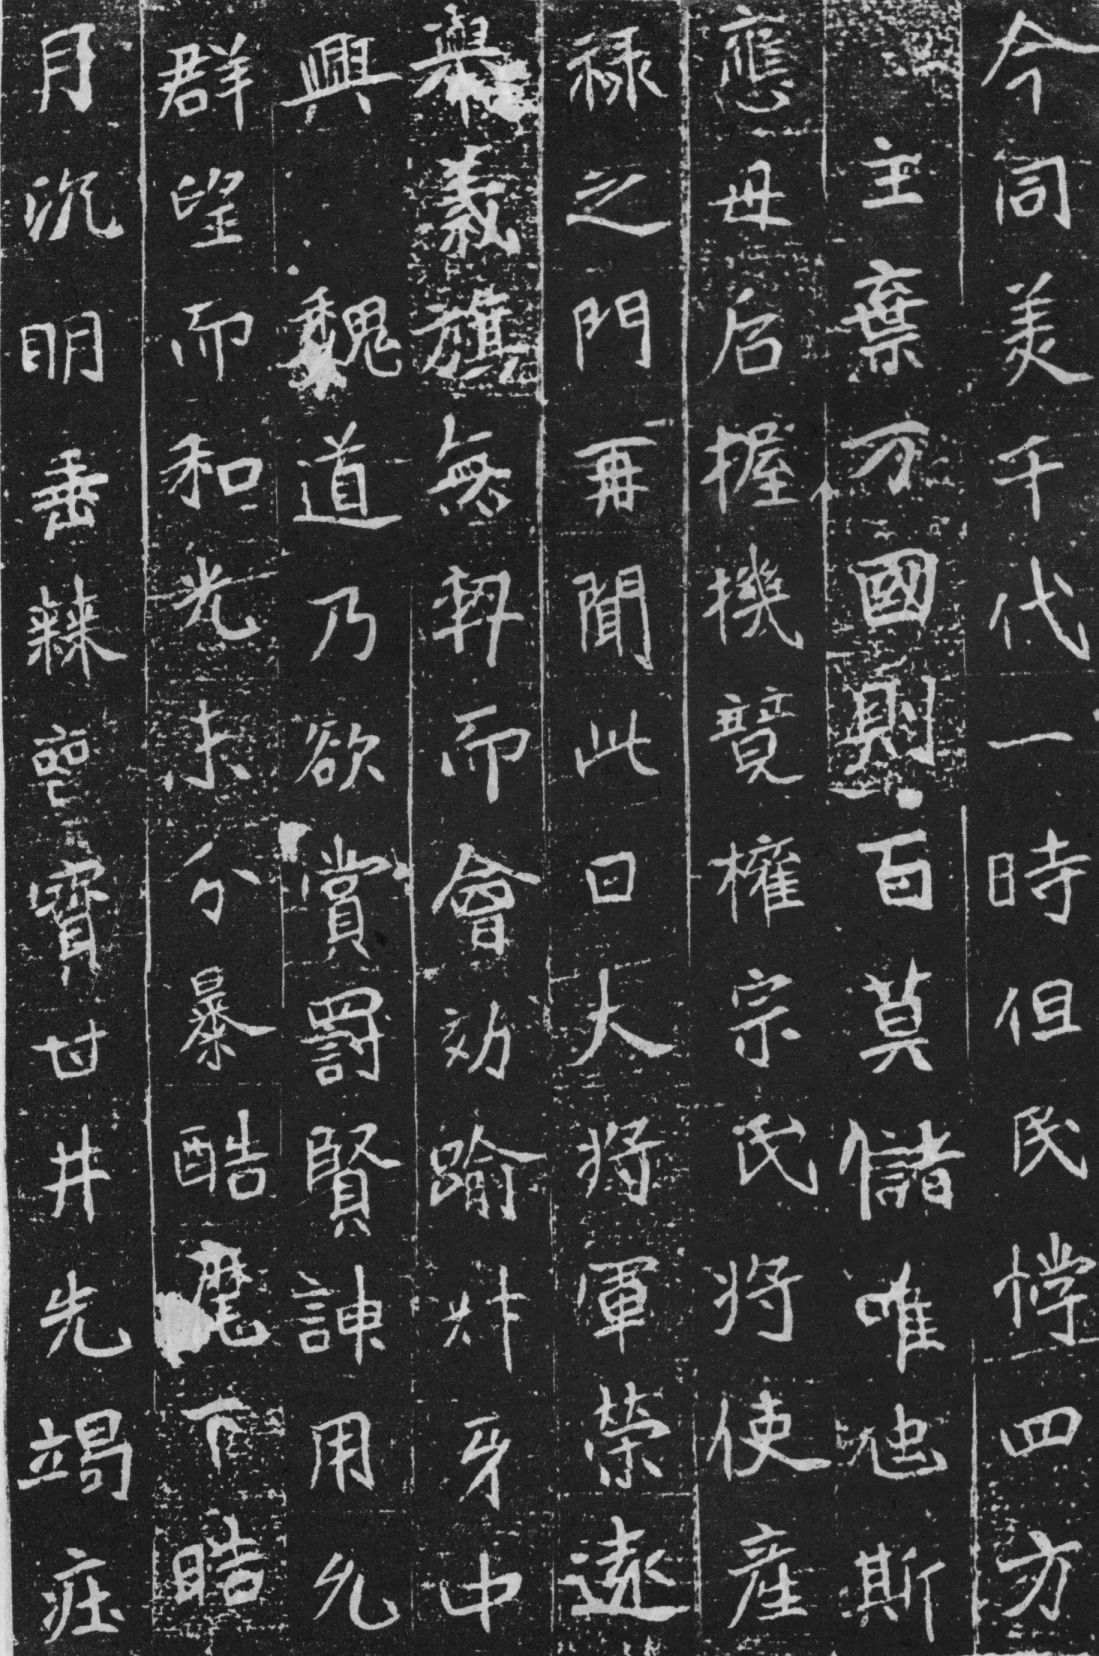 今同美千代一時但民悖四方
主棄万國則百莫儲唯忠斯
應母后握機競權宗民將使產
祿之門再聞此日大將軍榮遠
舉義旗無契而會効踰奸牙中
興魏道乃欲賞罰賢諫用允
群望而和光未分暴酷麾下晧
月沉明垂棘喪寶甘井先竭疰